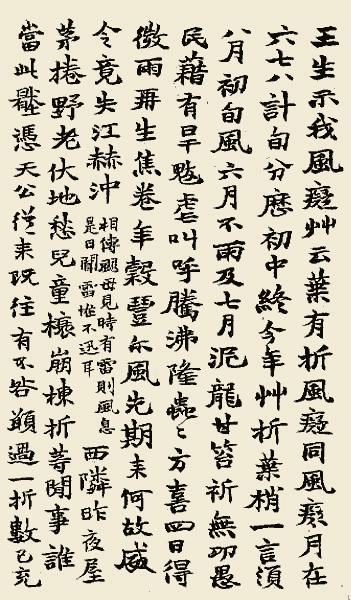 王生示我風癡艸云葉有折風癡同風癡月在
六七八計旬分歷初中終今年艸折葉梢一言須
八月初旬風六月不雨及七月泥龍甘笞祈無功愚
民藉有旱魃虐叫呼騰沸隆蟲ミ方喜四日得
微雨再生焦卷年穀豐尓風先期来何故威
令竟失江赫沖相傳颶母見時有雷則風息
是日聞雷惟不迅耳西隣昨夜屋
茅捲野老伏地愁兒童榱崩棟折等閒事誰
當此憑天公從来既往有不咎顧過一折數已充